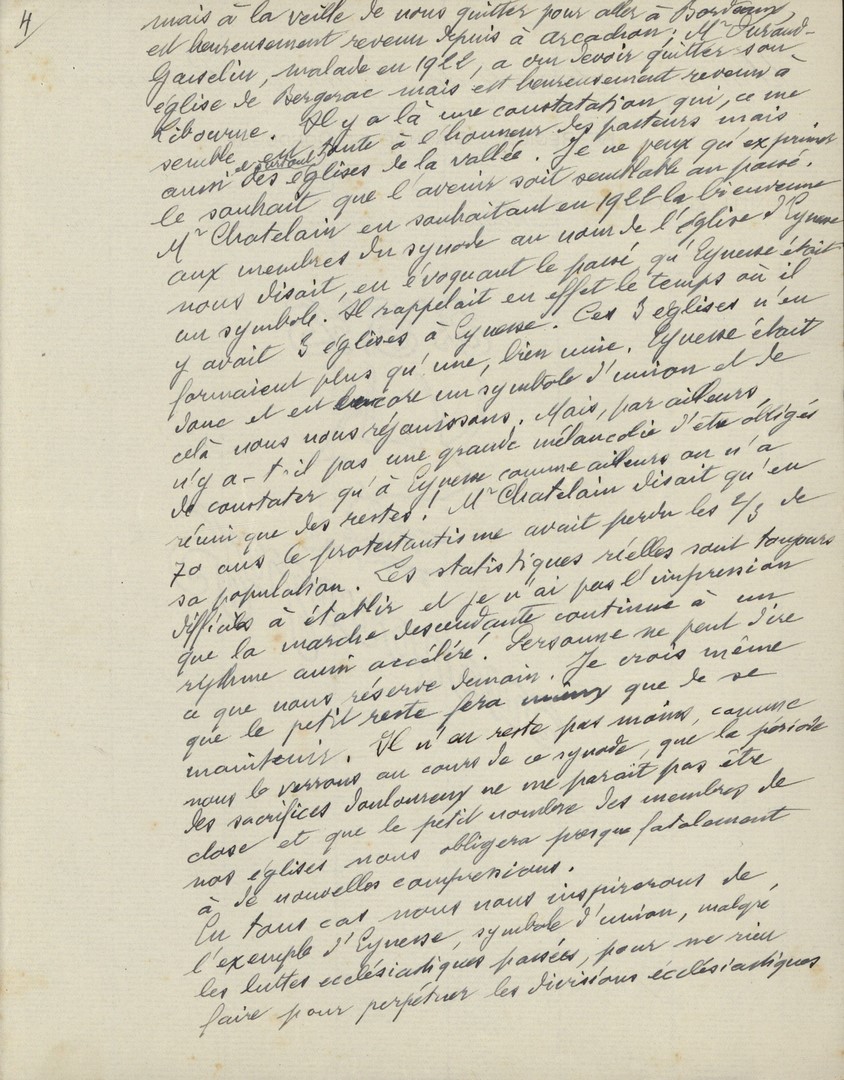 4
mais à la veille de nous quitter pour aller à Bordeaux,
est heureusement revenu depuis à Arcachon; Mr Durand-
Gasselin, malade en 1922, a cru devoir quitter son
église de Bergerac mais est heureusement revenu à
Libourne. Il y a là une constatation qui, ce me
semble, est toute à l'honneur des pasteurs mais
et surtout
aussi des églises de la vallée. Je ne peux qu'exprimer
le souhait que l'avenir soit semblable au passé.
Mr Chatelain en souhaitant en 1922 la bienvenue
aux membres du synode au nom de l'église d'Eynesse
nous disait, en évoquant le passé qu'Eynesse était
un symbole. Il rappelait en effet le temps où il
y avait 3 églises à Eynesse. Ces 3 églises n'en
formaient plus qu'une, bien unie. Eynesse était
donc et est encore un symbole d'union et de
celà nous nous réjouissons. Mais, par ailleurs,
n'y a-t-il pas une grande mélancolie d'être obligés
de constater qu'à Eynesse comme ailleurs on n'a
réuni que des restes! Mr Chatelain disait qu'en
70 ans le protestantisme avait perdu les 2/3 de
sa population. Les statistiques réelles sont toujours
difficiles à établir et je n'ai pas l'impression
que la marche descendante continue à un
rythme aussi accéléré. Personne ne peut dire
ce que nous réserve demain. Je crois même
que le petit reste fera mieux que de se
maintenir. Il n'en reste pas moins, comme
nous le verrons au cours de ce synode, que la période
des sacrifices douloureux ne me paraît pas être
close et que le petit nombre des membres de
nos églises nous obligera presque fatalement
à de nouvelles compressions.
En tous cas nous nous inspirerons de
l'exemple d'Eynesse, symbole d'union, malgré
les luttes ecclésiastiques passées, pour ne rien
faire pour perpétuer les divisions écclésiastiques